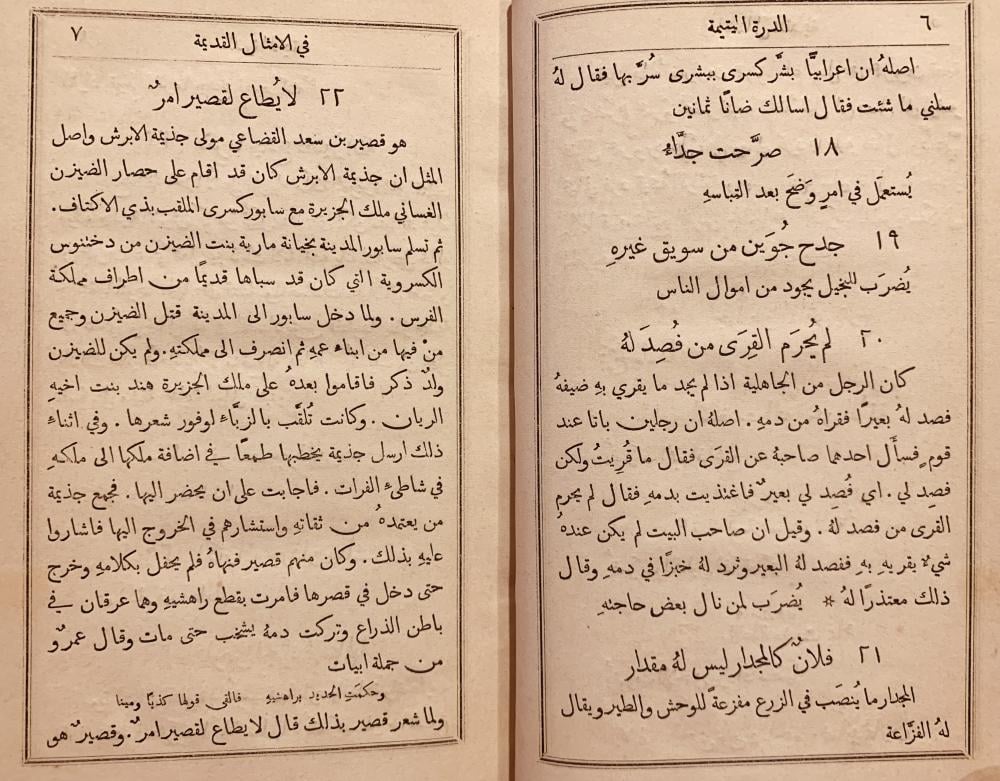 الدرة اليتيمة ٦
اصلهُ ان اعرابيًّا بشَّر كسرى ببشرى سُرَّ بها فقال لهُ
سلني ما شئت فقال اسالك ضانًا ثمانين
١٨ صرَّحت جدَّاءُ
يُستعمَل في امرٍ وَضَحَ بعد التباسهِ
١٩ جدح جُوَين من سويق غيرهِ
يُضرَب للبخيل يجود من اموال الناس
٢٠ لم يُحرَم القِرَى من فُصِدَ لهُ
كان الرجل من الجاهلية اذا لم يجد ما يقري بهِ ضيفهُ
فصد لهُ بعيرًا فقراهُ من دمهِ . اصلهُ ان رجلين باتا عند
قوم فسأَل احدهما صاحبهُ عن القرَى فقال ما قُرِيتُ ولكن
فصد لي . اي فُصِد لي بعيرٌ فاغتذيت بدمهِ فقال لم يحرم
القرى من فصد لهُ . وقيل ان صاحب البيت لم يكن عندهُ
شيءٌ يقريهِ بهِ ففصد لهُ البعير وثرد لهُ خبزًا في دمهِ وقال
ذلك معتذرًا لهُ * يُضرَب لمن نال بعض حاجتهِ
٢١ فلانٌ كالمجدار ليس لهُ مقدار
المجدار ما يُنصَب في الزرع مفزعةً للوحش والطير ويقال
لهُ الفزَّاعة
في الامثال القديمة ٧
٢٢ لا يُطاع لقصير امرٌ
هو قصير بن سعد القضاعي مولى جذيمة الابرش واصل
المثل ان جذيمة الابرش كان قد اقام على حصار الضيزن
الغساني ملك الجزيرة مع سابور كسرى الملقب بذي الاكتاف.
ثم تسلم سابور المدينة بخيانة مارية بنت الضيزن من دختنوس
الكسروية التي كان قد سباها قديمًا من اطراف مملكة
الفرس . ولما دخل سابور الى المدينة قتل الضيزن وجميع
منْ فيها من ابناء عمهِ ثم انصرف الى مملكتهِ. ولم يكن للضيزن
ولدٌ ذكر فاقاموا بعدهُ على ملك الجزيرة هند بنت اخيهِ
الريان . وكانت تُلقَّب بالزبَّاءِ لوفور شعرها . وفي اثناءِ
ذلك ارسل جذيمة يخطبها طمعًا في اضافة ملكها الى ملكهِ
في شاطئِ الفرات . فاجابت على ان يحضر اليها . فجمع جذيمة
من يعتمدهُ من ثقاتهِ واستشارهم في الخروج اليها فاشاروا
عليهِ بذلك . وكان منهم قصير فنهاهُ فلم يحفل بكلامهِ وخرج
حتى دخل في قصرها فامرت بقطع راهشيهِ وهما عرقان في
باطن الذراع وتركت دمهُ يشخب حتى مات وقال عمرٌو
من جملة ابيات
وحكمَتِ الحديد براهشيهِ فالفى قولها كذبًا ومينا
ولما شعر قصير بذلك قال لا يطاع لقصير امرٌ. وقصيرٌ هو